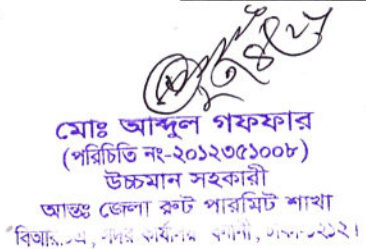 মোঃ আব্দুল গফফার
(পরিচিতি নং-২০১২৩৫১০০৮)
উচ্চমান সহকারী
আন্তঃ জেলা রুট পারমিট শাখা
বিআর.এ, সদর কার্যালয় বনানী, ঢাকা-১২১২।